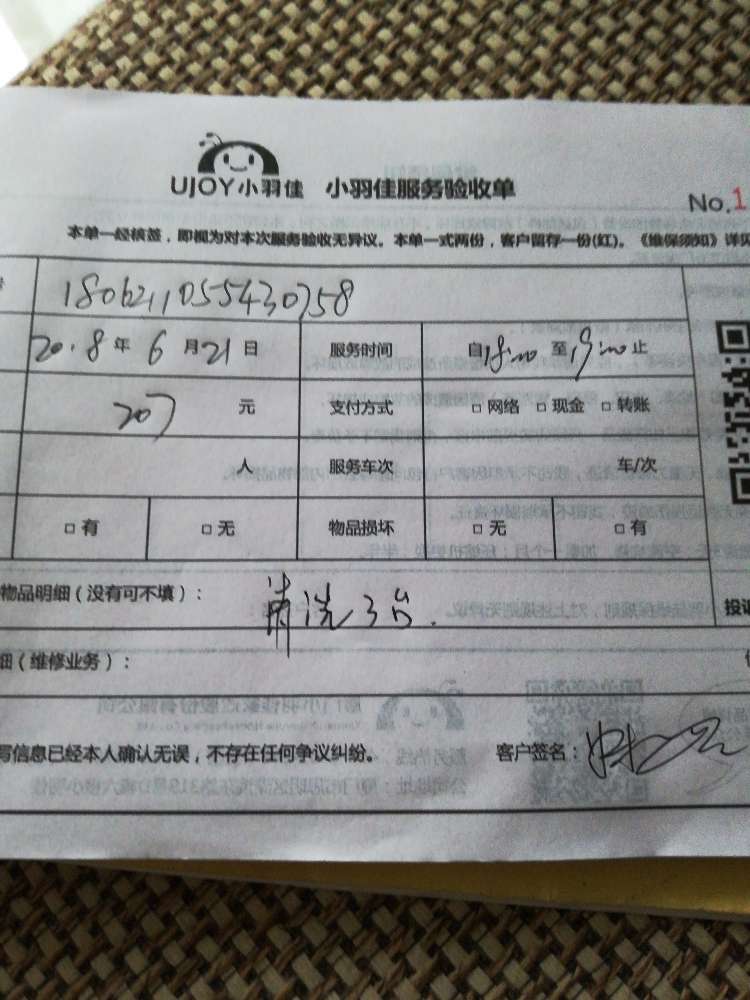 UJOY小羽佳 小羽佳服务验收单
No.1
本单一经核签，即视为对本次服务验收无异议。本单一式两份，客户留存一份(红)。《维保须知》详见
1806211055430758
20.8年6月21日 服务时间 自18:00至19:00止
207元 支付方式 □网络 □现金 □转账
人 服务车次 车/次
□有 □无 物品损坏 □无 □有
物品明细（没有可不填）： 清洗3台. 投诉
细（维修业务）：
写信息已经本人确认无误，不存在任何争议纠纷。 客户签名：